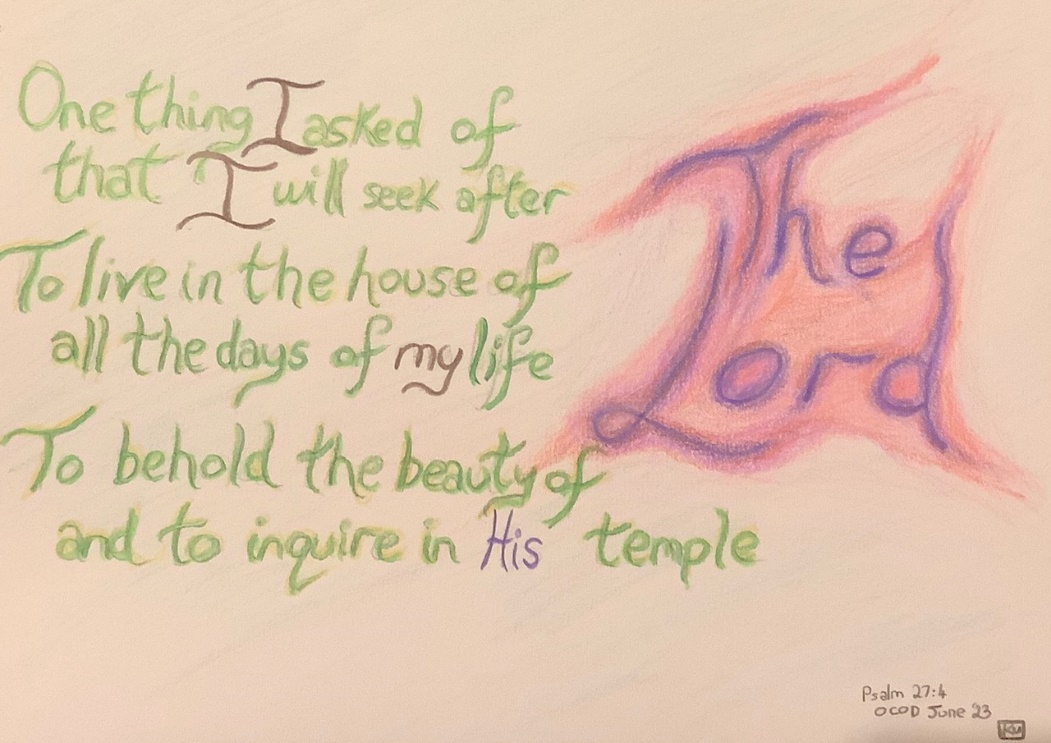 One thing I asked of
that I will seek after
To live in the house of
all the days of my life
To behold the beauty of
and to inquire in His temple
The
Lord
Psalm 27:4
OCOD June 23
KW